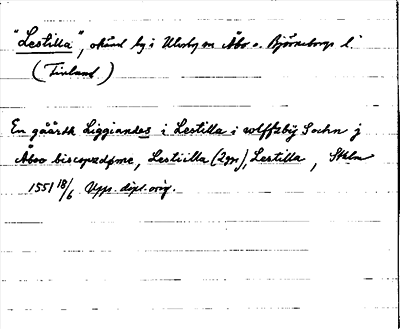 "Lestilla", okänd by i Ulvsby sn Åbo o. Björneborgs l.
(Finland)
En gåårdh Liggiandes i Lestilla i wlffzby Sochn j
Åboo biscopzdøme, Lestiilla (2ggr), Lestilla, Sthlm
1551 18/6 Upps. dipl. orig.